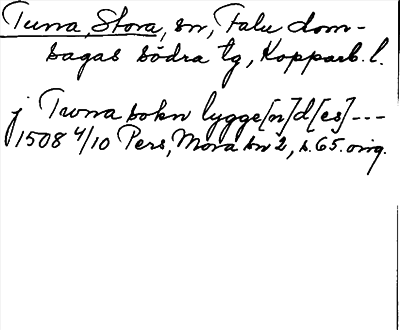 Tuna, Stora, sn, Falu dom-
sagas södra tg, Kopparb. l.
j Twna sokn lygge[n]d[es] ---
1508 4/10 Pers, Mora sn 2, s. 65. orig.